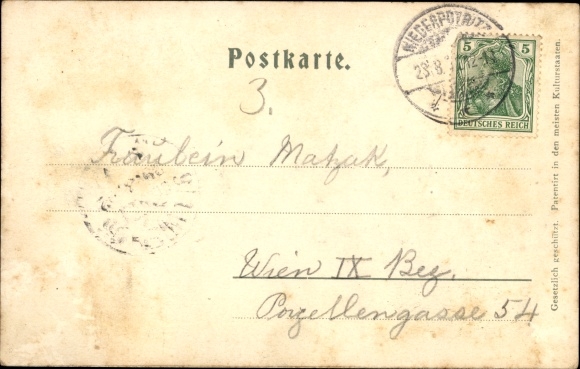 Postkarte.
NIEDERPOYRITZ
23.8.
5 5
DEUTSCHES REICH
3.
Fräulein Matzak,
Wien IX Bez.
Porzellengasse 54
Gesetzlich geschützt. Patentirt in den meisten Kulturstaaten.